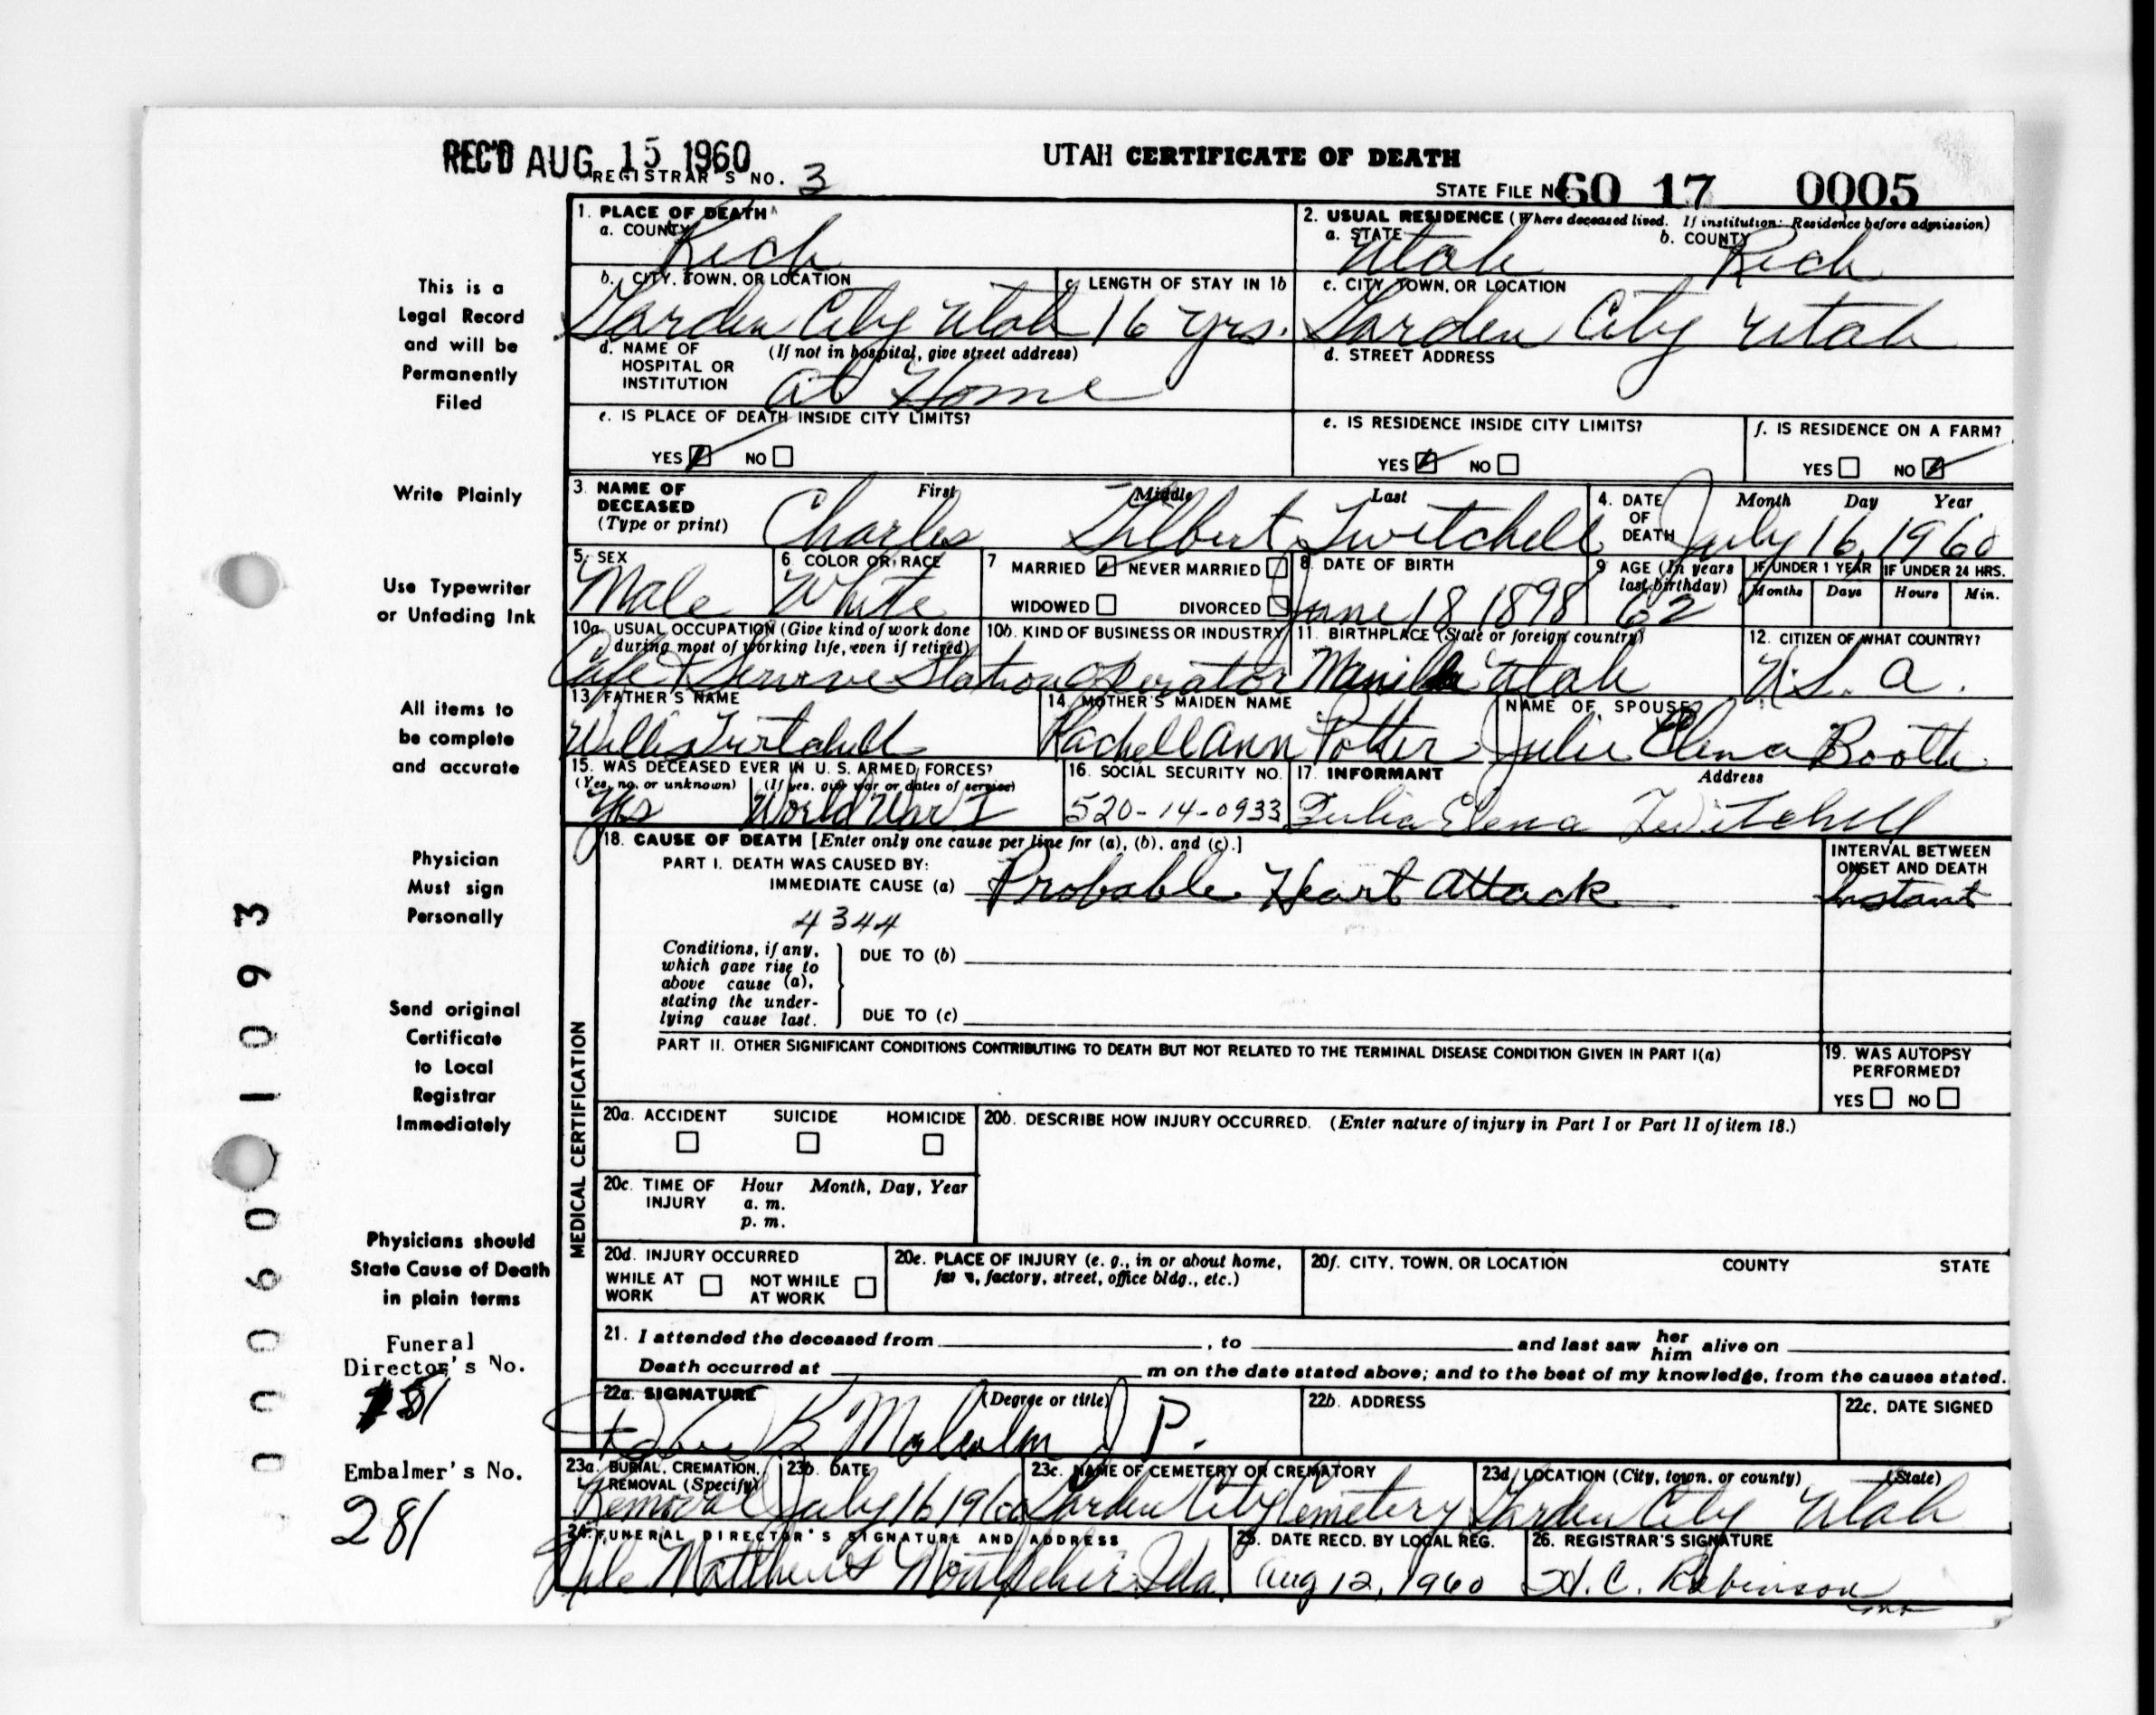 REC'D AUG 15 1960
UTAH CERTIFICATE OF DEATH
REGISTRAR'S NO. 3
STATE FILE No 60 17 0005
1. PLACE OF DEATH
a. COUNTY Rich
2. USUAL RESIDENCE (Where deceased lived. If institution: Residence before admission)
a. STATE Utah b. COUNTY Rich
b. CITY, TOWN, OR LOCATION Garden City Utah
c. LENGTH OF STAY IN 1b 16 yrs.
c. CITY, TOWN, OR LOCATION Garden City Utah
d. NAME OF HOSPITAL OR INSTITUTION (If not in hospital, give street address) at Home
d. STREET ADDRESS
e. IS PLACE OF DEATH INSIDE CITY LIMITS?
YES NO
e. IS RESIDENCE INSIDE CITY LIMITS?
YES NO
f. IS RESIDENCE ON A FARM?
YES NO
3. NAME OF DECEASED (Type or print) First Middle Last
Charles Gilbert Twitchell
4. DATE OF DEATH Month Day Year
July 16, 1960
5. SEX Male
6. COLOR OR RACE White
7 MARRIED NEVER MARRIED
WIDOWED DIVORCED
8. DATE OF BIRTH June 18 1898
9. AGE (In years last birthday) 62
IF UNDER 1 YEAR Months Days
IF UNDER 24 HRS. Hours Min.
10a. USUAL OCCUPATION (Give kind of work done during most of working life, even if retired)
10b. KIND OF BUSINESS OR INDUSTRY
Cafe & Service Station operator
11. BIRTHPLACE (State or foreign country) Manila Utah
12. CITIZEN OF WHAT COUNTRY? U.S.A.
13. FATHER'S NAME Willis Twitchell
14. MOTHER'S MAIDEN NAME Rachell Ann Potter
NAME OF SPOUSE Julie Elena Booth
15. WAS DECEASED EVER IN U. S. ARMED FORCES?
(Yes, no, or unknown) (If yes, give war or dates of service)
Yes World War I
16. SOCIAL SECURITY NO. 520-14-0933
17. INFORMANT Address
Julia Elena Twitchell
18. CAUSE OF DEATH [Enter only one cause per line for (a), (b), and (c).]
PART I. DEATH WAS CAUSED BY:
IMMEDIATE CAUSE (a) Probable Heart Attack
INTERVAL BETWEEN ONSET AND DEATH
Instant
4344
Conditions, if any, which gave rise to above cause (a), stating the underlying cause last.
DUE TO (b)
DUE TO (c)
PART II. OTHER SIGNIFICANT CONDITIONS CONTRIBUTING TO DEATH BUT NOT RELATED TO THE TERMINAL DISEASE CONDITION GIVEN IN PART I(a)
19. WAS AUTOPSY PERFORMED?
YES NO
MEDICAL CERTIFICATION
20a. ACCIDENT SUICIDE HOMICIDE
20b. DESCRIBE HOW INJURY OCCURRED. (Enter nature of injury in Part I or Part II of item 18.)
20c. TIME OF INJURY Hour Month, Day, Year
a. m.
p. m.
20d. INJURY OCCURRED
WHILE AT WORK NOT WHILE AT WORK
20e. PLACE OF INJURY (e. g., in or about home, factory, street, office bldg., etc.)
20f. CITY, TOWN, OR LOCATION COUNTY STATE
21. I attended the deceased from , to and last saw her him alive on
Death occurred at m on the date stated above; and to the best of my knowledge, from the causes stated.
22a. SIGNATURE (Degree or title)
K Malcolm J P.
22b. ADDRESS
22c. DATE SIGNED
23a. BURIAL, CREMATION, REMOVAL (Specify) Removal
23b. DATE July 16 1960
23c. NAME OF CEMETERY OR CREMATORY Garden City Cemetery
23d. LOCATION (City, town, or county) (State) Garden City Utah
24. FUNERAL DIRECTOR'S SIGNATURE AND ADDRESS
Matthews Montpelier Ida.
25. DATE RECD. BY LOCAL REG. Aug 12, 1960
26. REGISTRAR'S SIGNATURE H. C. Robinson
This is a
Legal Record
and will be
Permanently
Filed
Write Plainly
Use Typewriter
or Unfading Ink
All items to
be complete
and accurate
Physician
Must sign
Personally
Send original
Certificate
to Local
Registrar
Immediately
Physicians should
State Cause of Death
in plain terms
Funeral
Director's No.
Embalmer's No.
281
000601093